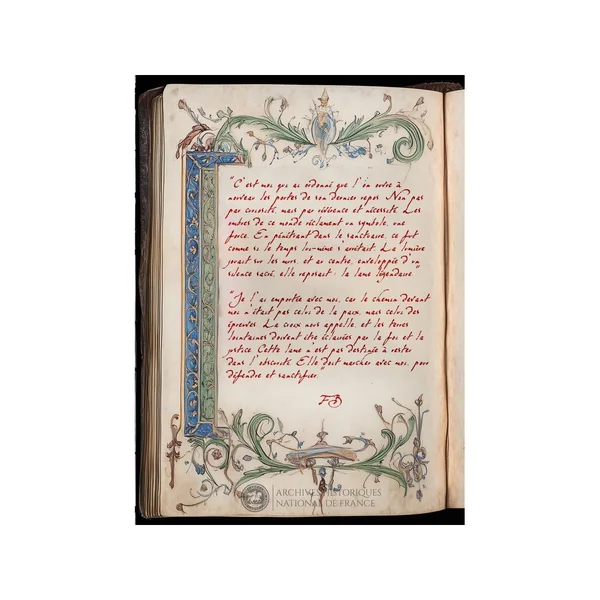 "C'est moi qui ai ordonné que l'on ouvre à
nouveau les portes de son dernier repos. Non pas
par curiosité, mais par référence et nécessité. Les
ombres de ce monde réclament un symbole, une
force. En pénétrant dans le sanctuaire, ce fut
comme si le temps lui-même s'arrêtait. La lumière
jouait sur les murs, et au centre, enveloppée d'un
silence sacré, elle reposait : la lame légendaire"
"Je l'ai emportée avec moi, car le chemin devant
moi n'était pas celui de la paix, mais celui des
épreuves. La croix nous appelle, et les terres
lointaines doivent être éclairées par la foi et la
justice. Cette lame n'est pas destinée à rester
dans l'obscurité. Elle doit marcher avec moi, pour
défendre et sanctifier."
FB
ARCHIVES HISTORIQUES
NATIONAL DE FRANCE